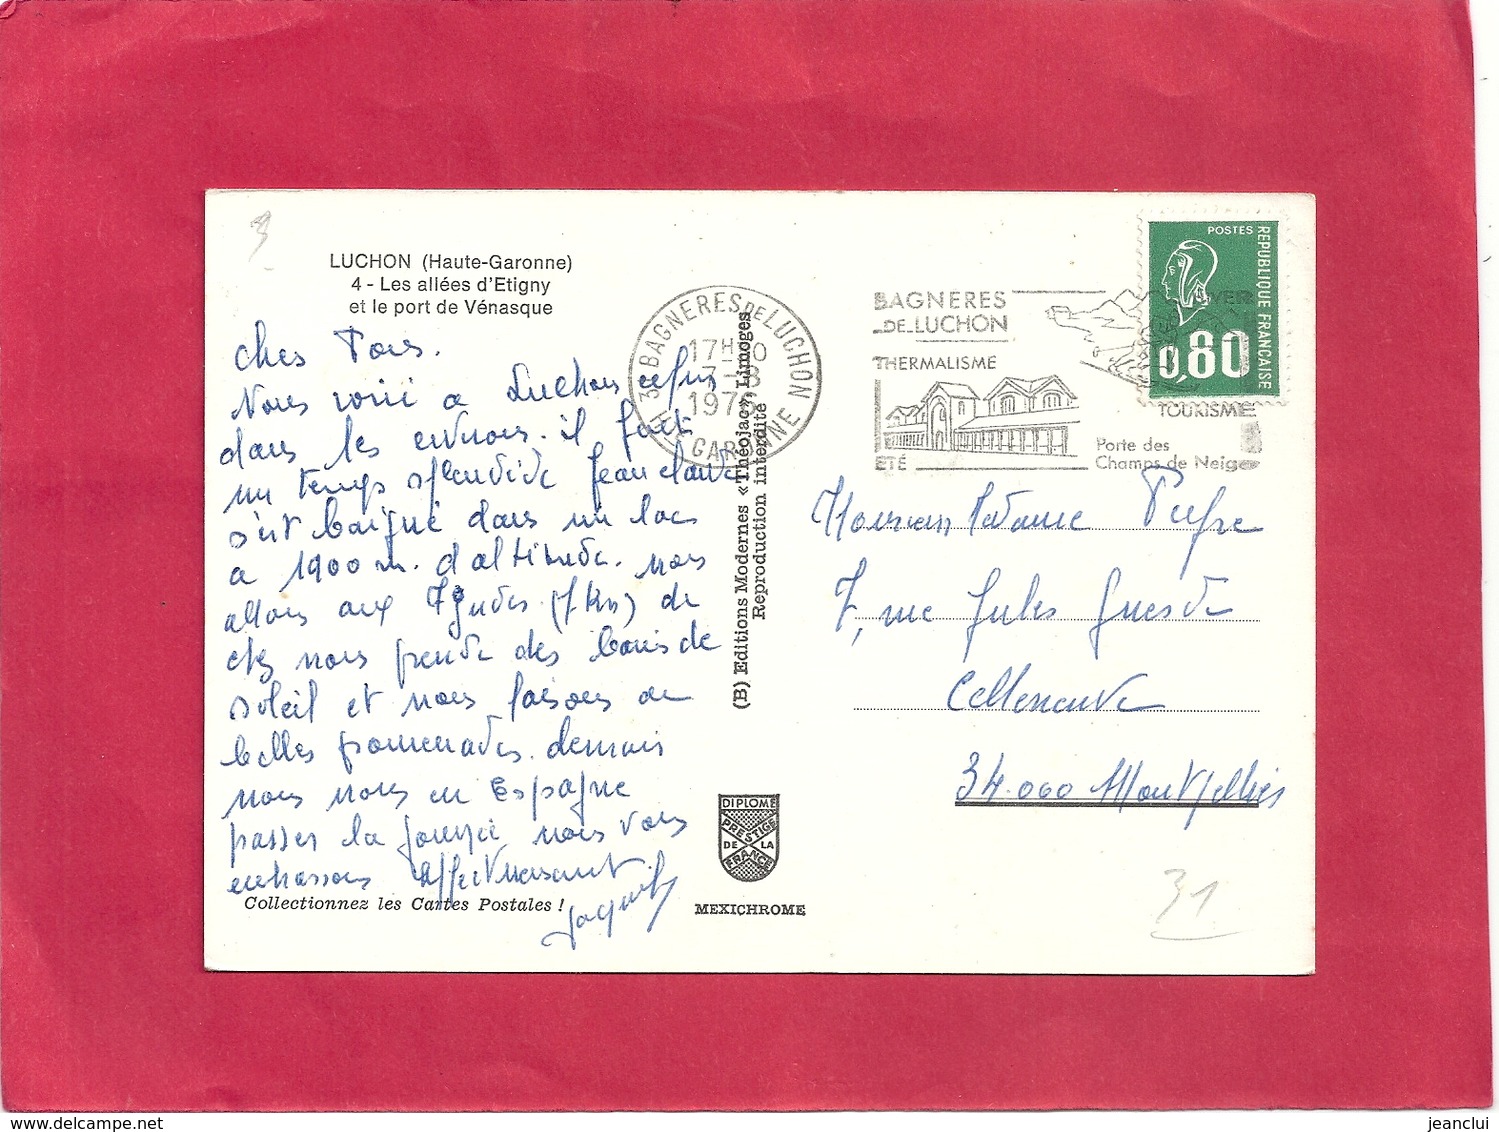 LUCHON (Haute-Garonne)
4 - Les allées d'Etigny
et le port de Vénasque
chers Tous.
Nous voici a Luchon enfin
dans les environs. il fait
un temps splendide Jean claude
s'est baigné dans un lac
a 1900 m. d'altitude. nous
allons aux (7 km) de
chez nous prendre des bains de
soleil et nous faisons de
belles promenades. demain
nous nous en Espagne
passer la journée nous vous
embrassons affectueusement
Collectionnez les Cartes Postales !
BAGNERES DE LUCHON
17H
1976
HTE GARONNE
(B) Editions Modernes «Théojac», Limoges
Reproduction interdite
DIPLOME
PRESTIGE
DE LA
FRANCE
MEXICHROME
BAGNERES
DE LUCHON
THERMALISME
ÉTÉ
TOURISME
Porte des
Champs de Neige
POSTES
REPUBLIQUE FRANCAISE
0,80
Monsieur Madame
7, rue Jules Guesde
Celleneuve
34.000 Montpellier
31
delcampe.net
jeanclui